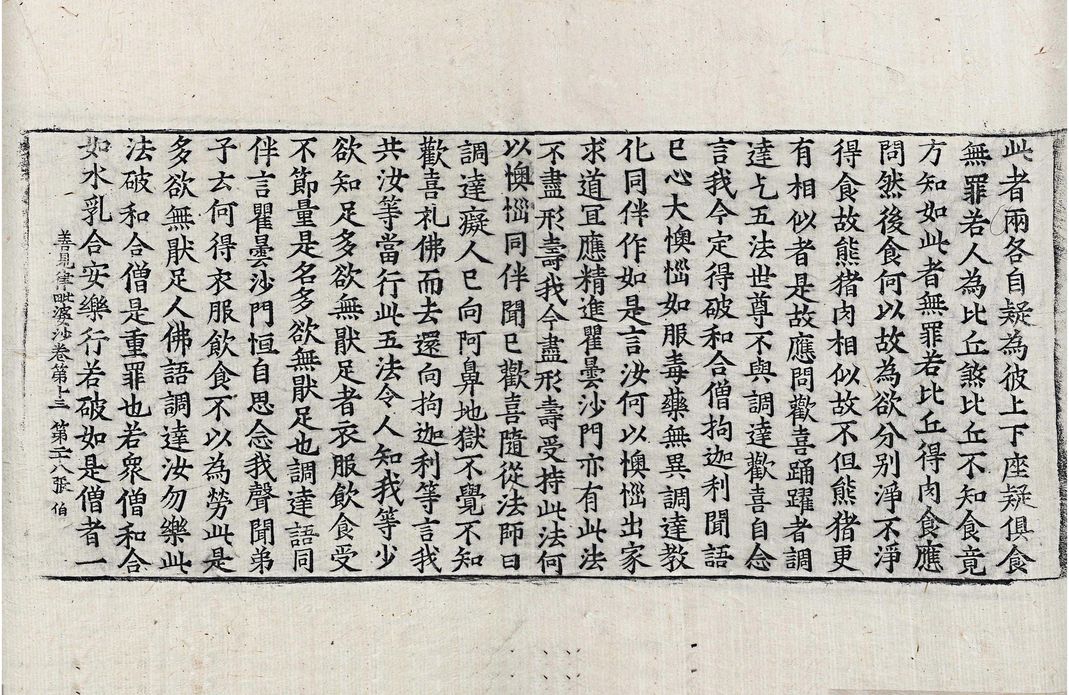 此者兩各自疑為彼上下座疑俱食
無罪若人為比丘煞比丘不知食竟
方知如此者無罪若比丘得肉食應
問然後食何以故為欲分別淨不淨
得食故熊猪肉相似故不但熊猪更
有相似者是故應問歡喜踊躍者調
達乞五法世尊不與調達歡喜自念
言我今定得破和合僧拘迦利聞語
已心大懊惱如服毒藥無異調達教
化同伴作如是言汝何以懊惱出家
求道宜應精進瞿曇沙門亦有此法
不盡形壽我今盡形壽受持此法何
以懊惱同伴聞已歡喜隨從法師曰
調達癡人已向阿鼻地獄不覺不知
歡喜礼佛而去還向拘迦利等言我
共汝等當行此五法令人知我等少
欲知足多欲無猒足者衣服飲食受
不節量是名多欲無猒足也調達語同
伴言瞿曇沙門恒自思念我聲聞弟
子云何得衣服飲食不以為勞此是
多欲無猒足人佛語調達汝勿樂此
法破和合僧是重罪也若衆僧和合
如水乳合安樂行若破如是僧者一
善見律毗婆沙卷第十三 第二十八張 伯